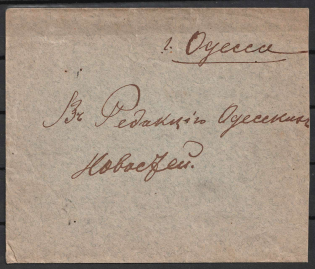 г. Одесса
Въ Редакцію Одесскихъ
Новостей.